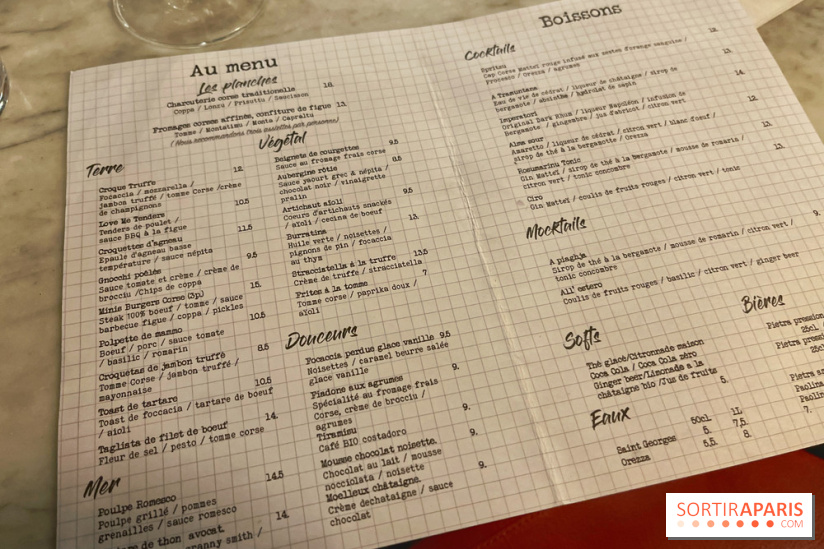 Au menu
Les planches
Charcuterie corse traditionelle 16.
Coppa / Lonzu / Prisuttu / Saucisson
Fromages corses affinés, confiture de figue 13.
Tomme / Montatimu / Monta / Capraltu
( Nous recommandons trois assiettes par personne)
Terre
Croque Truffe 12.
Focaccia / mozzarella /
jambon truffé / tomme Corse /crème
de champignons
Love Me Tenders 10.5
Tenders de poulet /
sauce BBQ à la figue
Croquettes d'agneau 11.5
Epaule d'agneau basse
température / sauce népita
Gnocchi poêlés 9.5
Sauce tomate et crème / crème de
brocciu /Chips de coppa
Minis Burgers Corse (3p) 15.
Steak 100% boeuf / tomme / sauce
barbecue figue / coppa / pickles
Polpette de mammo 10.5
Boeuf / porc / sauce tomate
/ basilic / romarin
Croquetas de jambon truffé 8.5
Tomme Corse / jambon truffé /
mayonnaise
Toast de tartare 10.5
Toast de foccacia / tartare de boeuf
/ aïoli
Tagliata de filet de boeuf 14.
Fleur de sel / pesto / tomme corse
Mer
Poulpe Romesco 14.5
Poulpe grillé / pommes
grenailles / sauce romesco
de thon avocat 14.
granny smith /
Végétal
Beignets de courgettes 9.5
Sauce au fromage frais corse
Aubergine rôtie 8.5
Sauce yaourt grec & népita /
chocolat noir / vinaigrette
pralin
Artichaut aïoli 9.5
Coeurs d'artichauts snackés
/ aïoli / cecina de boeuf
Burratina 13.
Huile verte / noisettes /
pignons de pin / focaccia
au thym
Stracciatella à la truffe 13.5
Crème de truffe / stracciatella
Frites à la tomme 7.
Tomme corse / paprika doux /
aïoli
Douceurs
Focaccia perdue glace vanille 9.5
Noisettes / caramel beurre salée
glace vanille
Fiadone aux agrumes 9.
Spécialité au fromage frais
Corse, crème de brocciu /
agrumes
Tiramisu 9.
Café BIO costadoro
Mousse chocolat noisette. 9.
Chocolat au lait / mousse
nocciolata / noisette
Moelleux châtaigne. 9.
Crème dechataigne / sauce
chocolat
Boissons
Cocktails
Spritzu 12.
Cap Corse Mattei rouge infusé aux zestes d'orange sanguine /
Prosecco / Orezza / agrumes
A Tramuntana 13.
Eau de vie de cédrat / liqueur de châtaigne / sirop de
bergamote / absinthe / hydrolat de sapin
Imperatori 14.
Original Dark Rhum / liqueur Napoléon / infusion de
Bergamote / gingembre / jus d'abricot / citron vert
Alma sour 12.
Amaretto / liqueur de cédrat / citron vert / blanc d'oeuf /
sirop de thé à la bergamotte / Orezza
Rosumarinu Tonic 13.
Gin Mattei / sirop de thé à la bergamote / mousse de romarin /
citron vert / tonic concombre
Ciro 13.
Gin Mattei / coulis de fruits rouges / citron vert / tonic
Mocktails
A piaghja 9.
Sirop de thé à la bergamote / mousse de romarin / citron vert /
tonic concombre
All' estero
Coulis de fruits rouges / basilic / citron vert / ginger beer
Softs
Thé glacé/Citronnade maison
Coca Cola / Coca Cola zéro
Ginger beer/Limonade a la
châtaigne bio /Jus de fruits 5.
Eaux
50cl. 1L
Saint Georges 5. 7,5.
Orezza 5,5. 8.
Bières
Pietra pression
25cl.
Pietra pression
25cl
Pietra
Paolina
Paolina
7.
SORTIRAPARIS
.COM